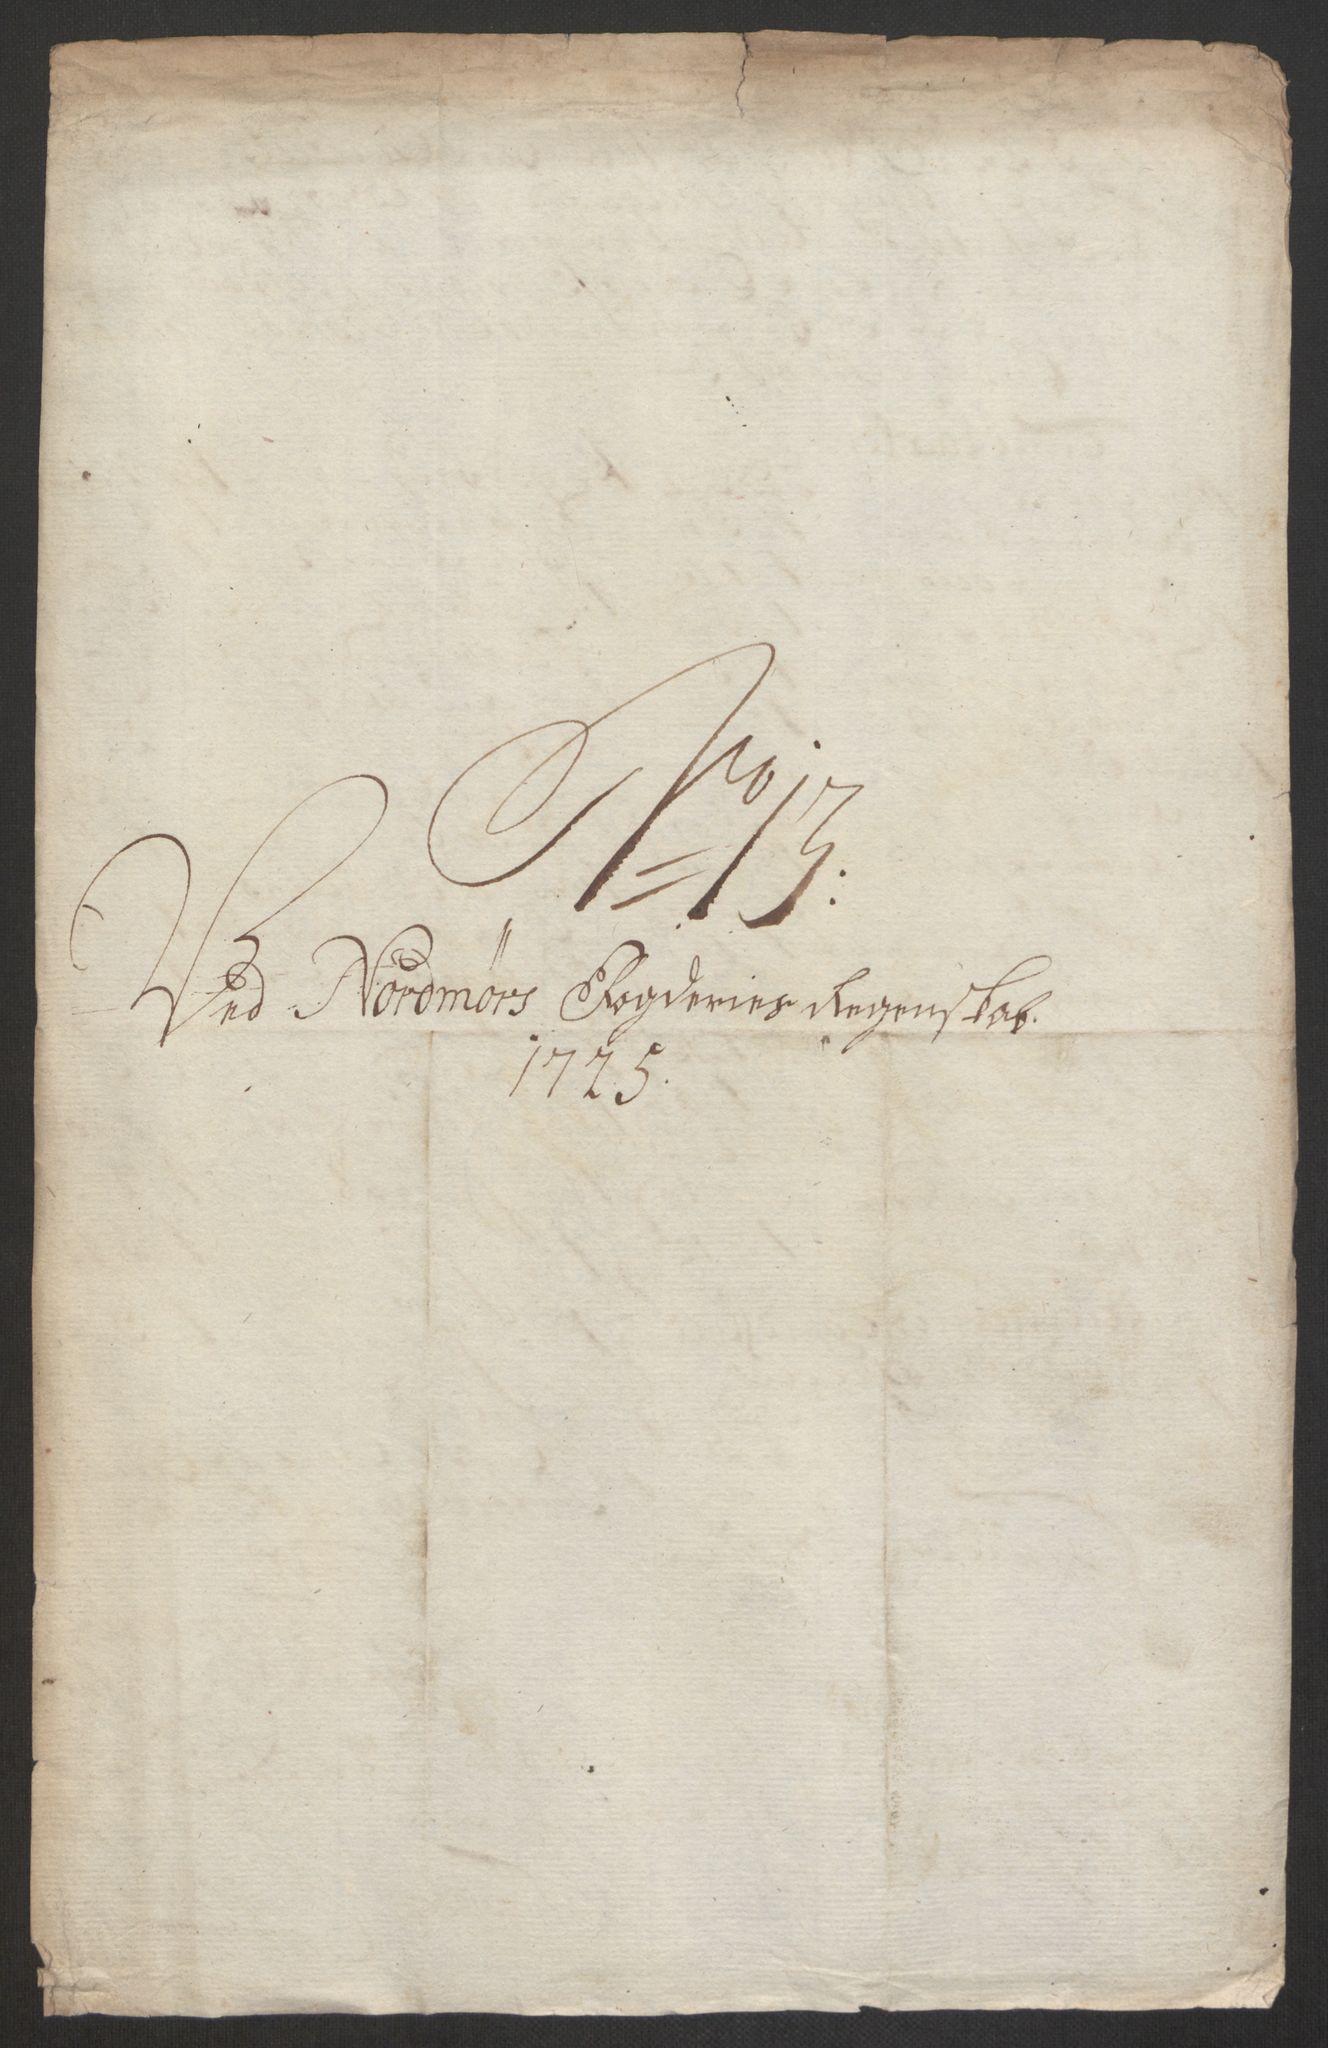 No 13:
Ved Nordmørs Fogderies Regenskab.
1725.